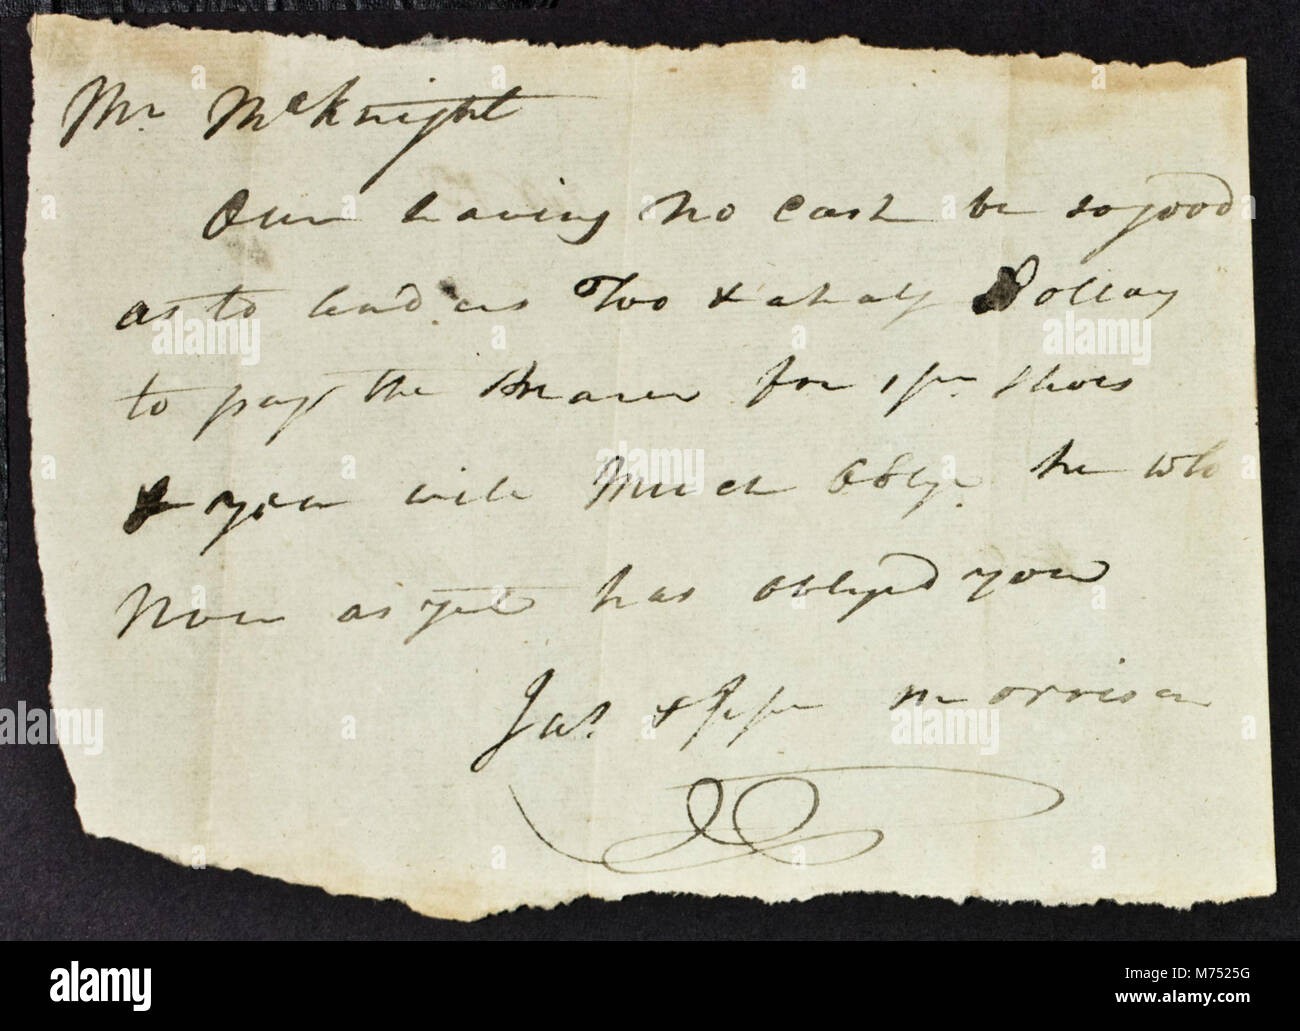 Mr. McKnight
Our having no cash be so good
as to lend us Two & a half Dollars
to pay the Bearer for 1 pr. shoes
& you will Much Oblige he who
Never as yet has obliged you
Jas. & Morrison
alamy
Image ID: M7525G
www.alamy.com